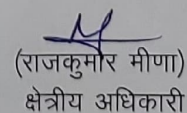 (राजकुमार मीणा)
क्षेत्रीय अधिकारी